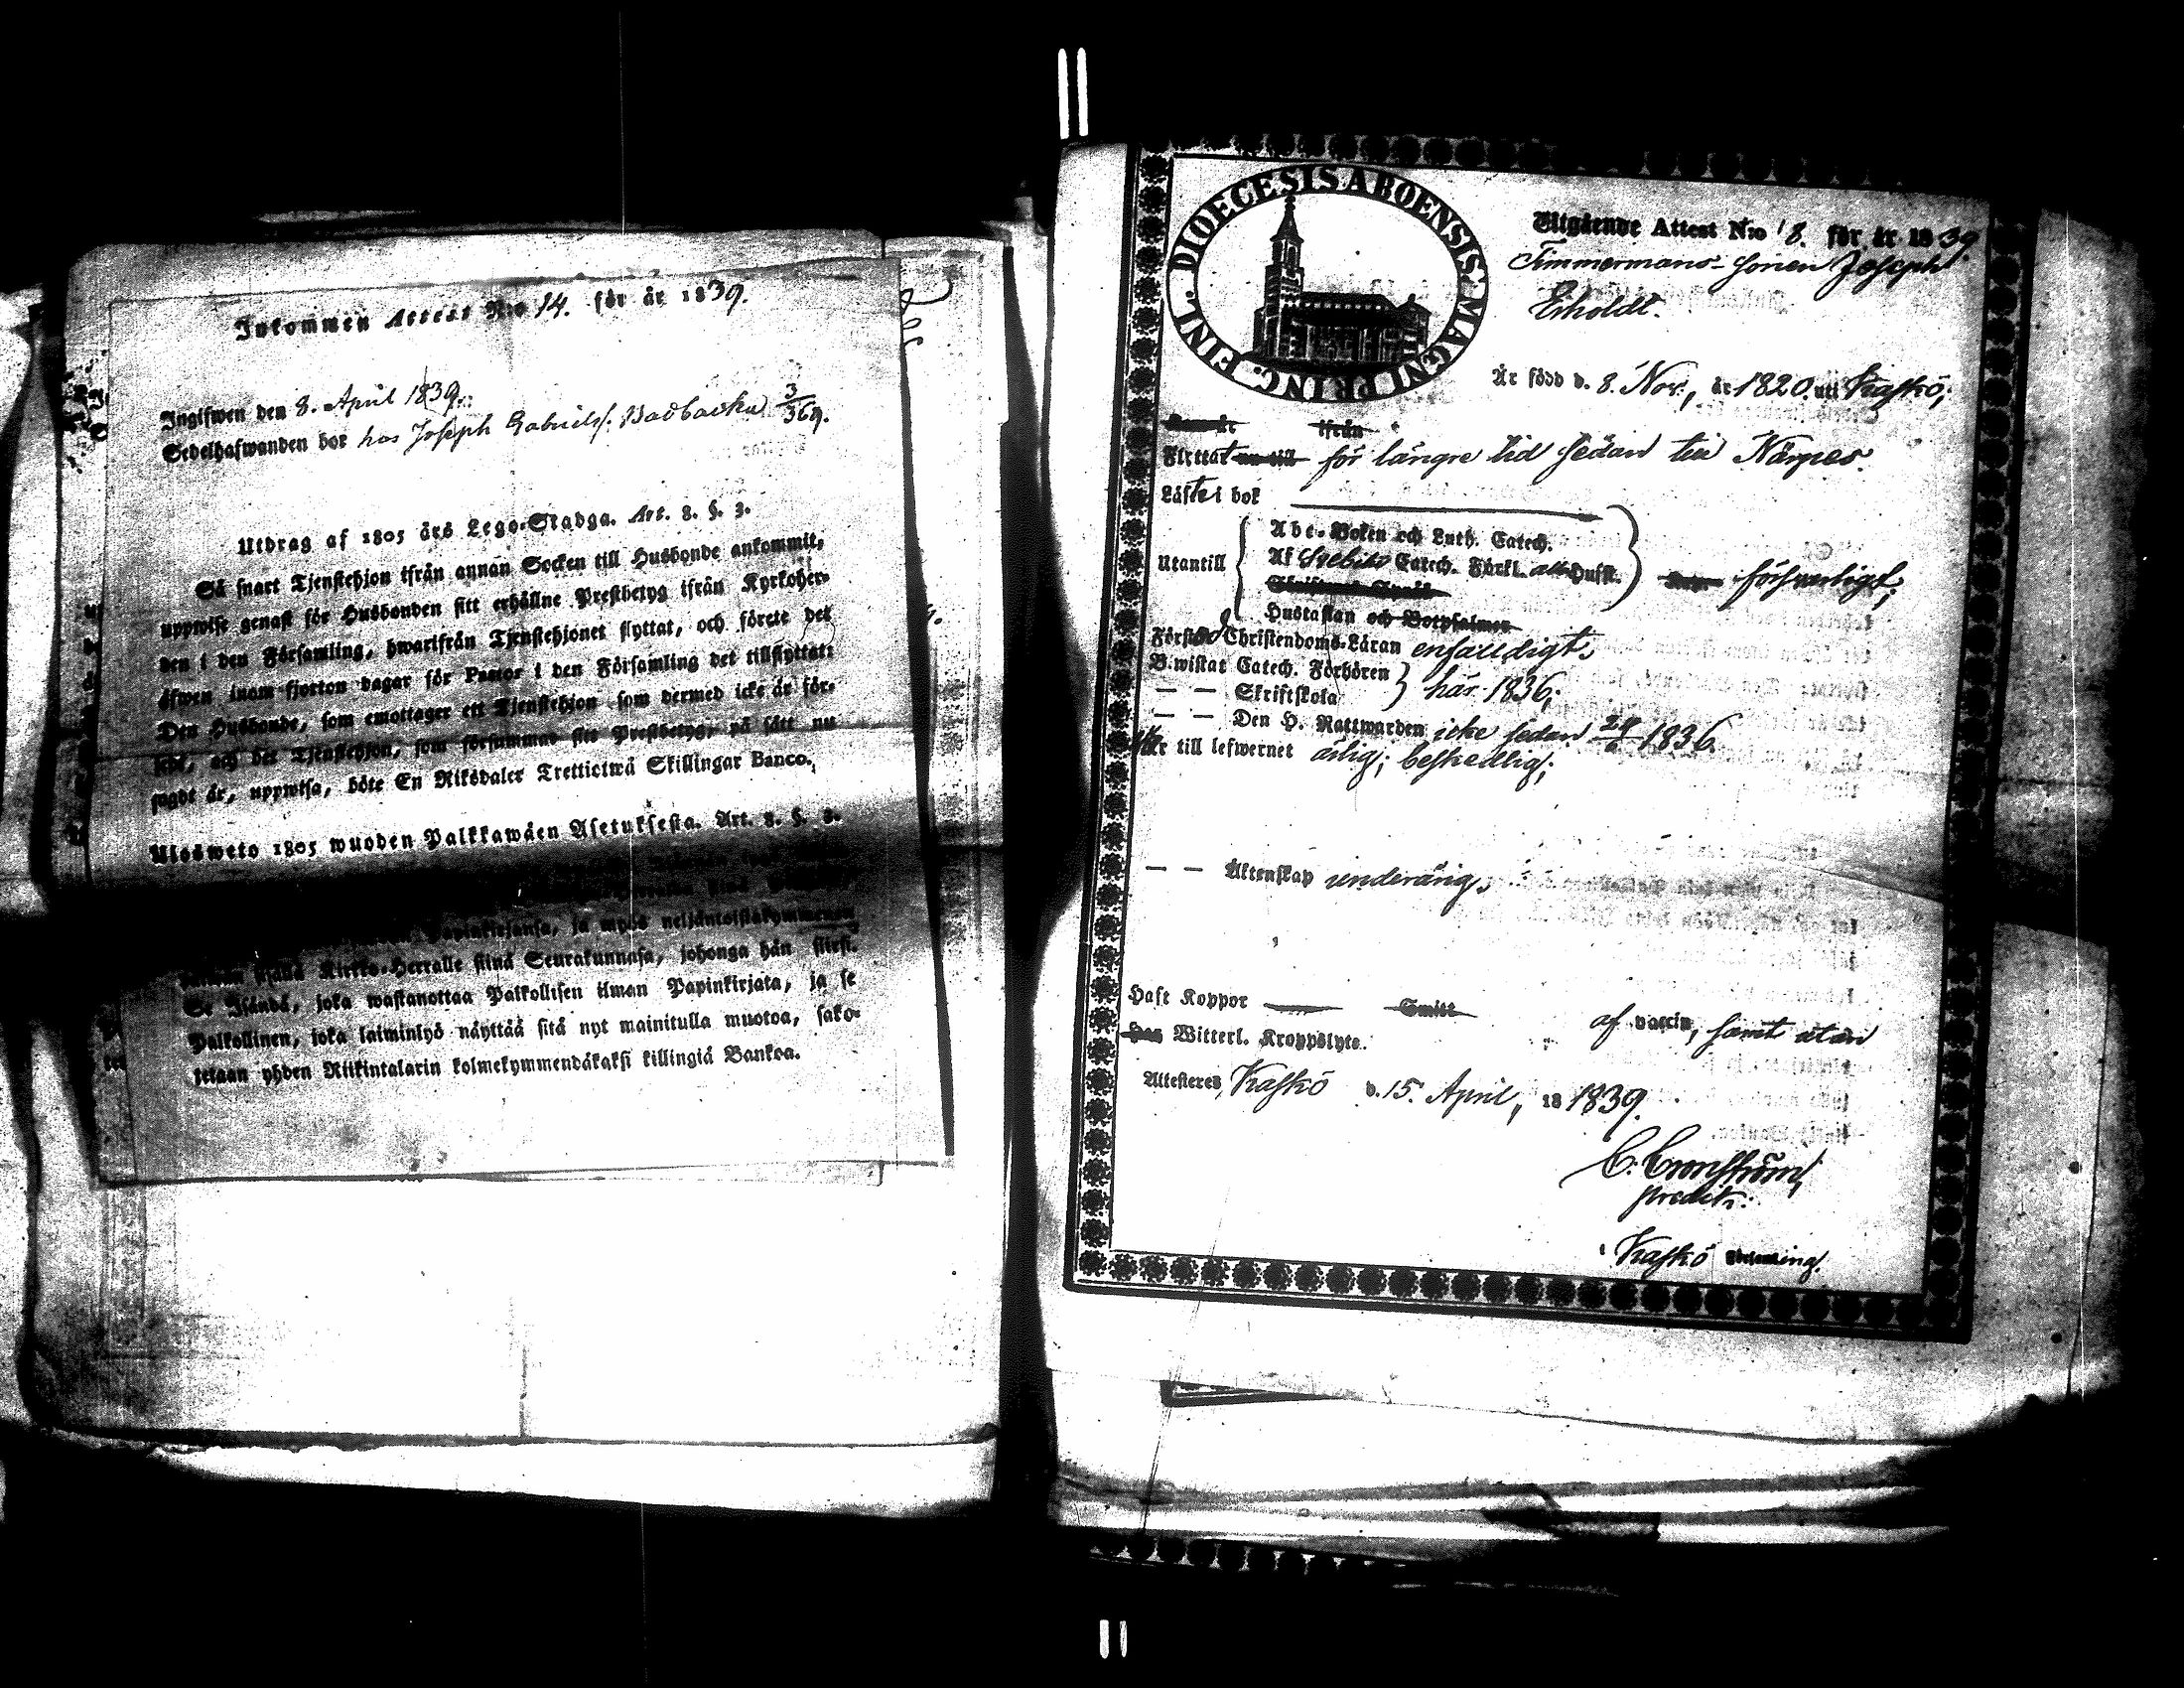 Inkommen Attest N:o 14. för år 1839.
Ingifwen den 8. April 1839.
Sedelhafwanden bor hos Joseph Gabrielss. Badbacka 3/369.
Utdrag af 1805 års Lego-Stadga. Art. 8. §. 3.
Så snart Tjenstehjon ifrån annan Socken till Husbonde ankommit,
uppwise genast för Husbonden sitt erhållne Prestbetyg ifrån Kyrkoher-
den i den Församling, hwarifrån Tjenstehjonet flyttat, och förete det
äfwen inom fjorton dagar för Pastor i den Församling det tillflyttat:
Den Husbonde, som emottager ett Tjenstehjon som dermed icke är för-
sedt, och det Tjenstehjon, som försummar sitt Prestbetyg, på sätt nu
sagdt är, uppwisa, böte En Riksdaler Trettiotwå Skillingar Banco.
Ulosweto 1805 wuoden Palkkawäen Asetuksesta. Art. 8. §. 3.
Papinkirjansa, ja myös neljäntoistakymmenen
Kirkko-Herralle siinä Seurakunnasa, johonga hän siirsi.
Se Isändä, joka wastanottaa Palkollisen ilman Papinkirjata, ja se
Palkollinen, joka laiminlyö näyttää sitä nyt mainitulla muotoa, sako-
tetaan yhden Riikintalarin kolmekymmendäkaksi killingiä Bankoa.
DIOECESIS ABOENSIS MAGNI PRINC. FINL.
Utgående Attest N:o 18. för år 1839.
Timmermans-sonen Joseph
Erholdt.
Är född d. 8. Nov., år 1820. uti Kaskö;
ifrån
Flyttat nu till för längre tid sedan till Närpes.
Läste i bok
Abc-Boken och Luth. Catech.
Utantill Af Svebilii Catech. Förkl. Husft. försvarligt;
Hustaflan och Botpsalmer
Förstod Christendoms-Läran enfaldigt;
Bewistat Catech. Förhören
— — Skriftskola här 1836;
— — Den H. Nattwarden icke sedan 24/6 1836
Är till lefwernet ärlig; beskedlig;
— — Äktenskap underårig;
Haft Koppor Smitt af vaccin, samt utan
Witterl. Kroppslyte.
Attesteres, Kaskö d. 15. April, 18 1839.
C. Cronström,
predik:
i Kaskö Församling.